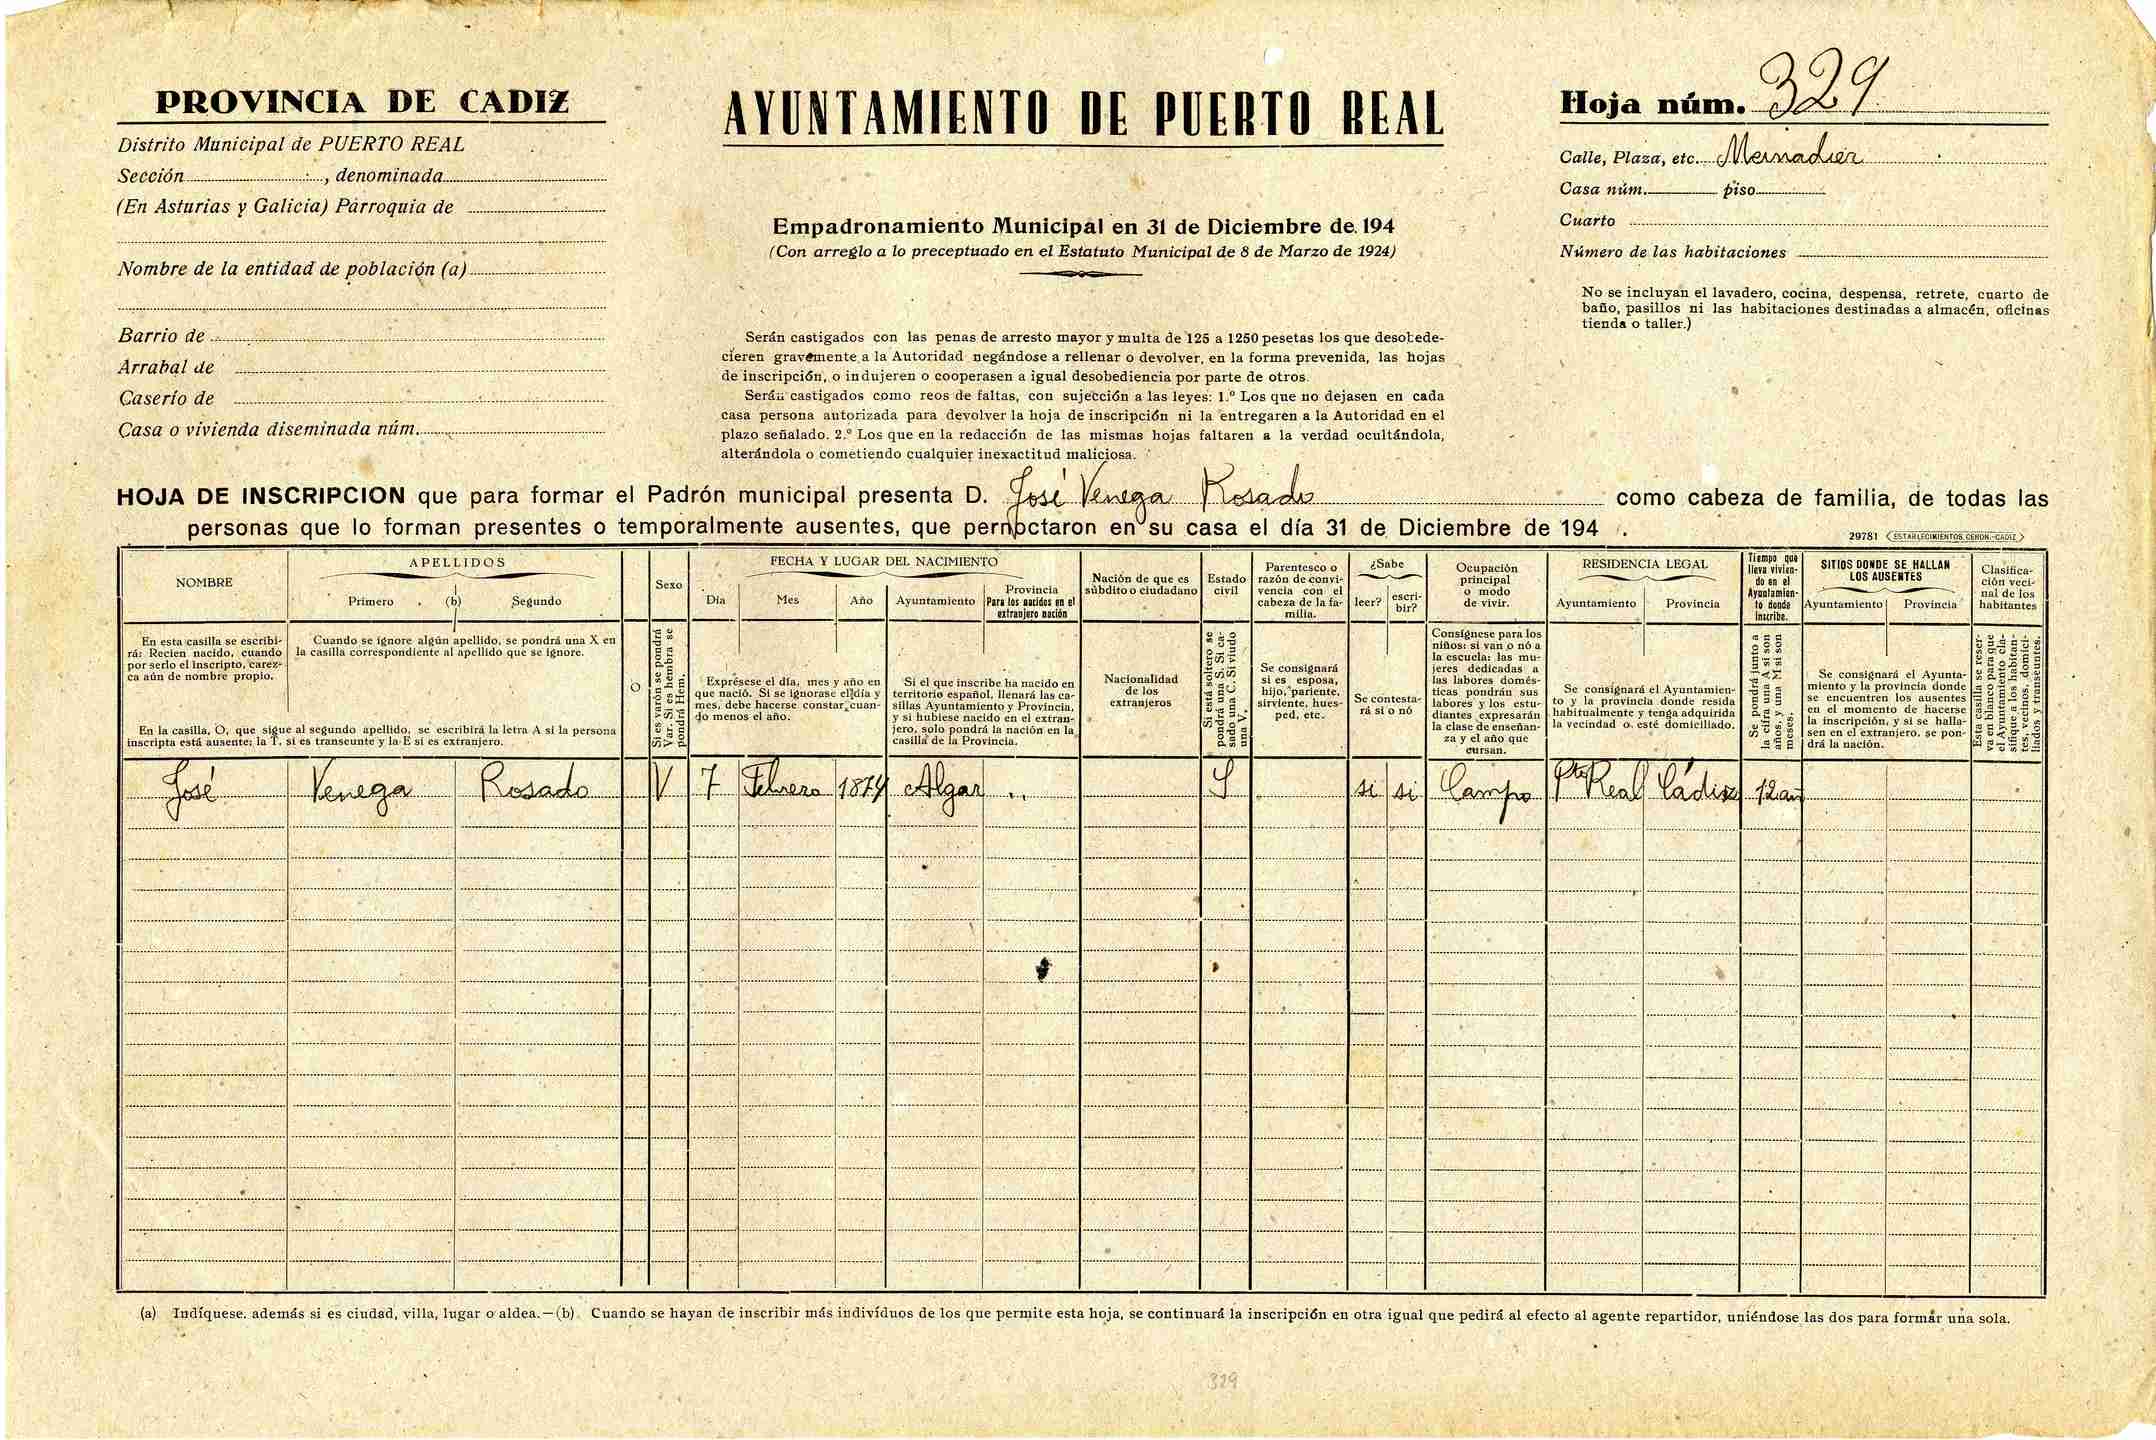 PROVINCIA DE CADIZ
Distrito Municipal de PUERTO REAL
Sección , denominada
(En Asturias y Galicia) Parroquia de
Nombre de la entidad de población (a)
Barrio de
Arrabal de
Caserío de
Casa o vivienda diseminada núm.
AYUNTAMIENTO DE PUERTO REAL
Empadronamiento Municipal en 31 de Diciembre de 194
(Con arreglo a lo preceptuado en el Estatuto Municipal de 8 de Marzo de 1924)
Serán castigados con las penas de arresto mayor y multa de 125 a 1250 pesetas los que desobede-
cieren gravemente a la Autoridad negándose a rellenar o devolver, en la forma prevenida, las hojas
de inscripción, o indujeren o cooperasen a igual desobediencia por parte de otros.
Serán castigados como reos de faltas, con sujección a las leyes: 1.º Los que no dejasen en cada
casa persona autorizada para devolver la hoja de inscripción ni la entregaren a la Autoridad en el
plazo señalado. 2.º Los que en la redacción de las mismas hojas faltaren a la verdad ocultándola,
alterándola o cometiendo cualquier inexactitud maliciosa.
Hoja núm. 329
Calle, Plaza, etc. Meinadier
Casa núm. piso
Cuarto
Número de las habitaciones
No se incluyan el lavadero, cocina, despensa, retrete, cuarto de
baño, pasillos ni las habitaciones destinadas a almacén, oficinas
tienda o taller.)
HOJA DE INSCRIPCION que para formar el Padrón municipal presenta D. José Venega Rosado como cabeza de familia, de todas las
personas que lo forman presentes o temporalmente ausentes, que pernoctaron en su casa el día 31 de Diciembre de 194 .
29781 ESTABLECIMIENTOS CERON.-CADIZ
NOMBRE
En esta casilla se escribi-
rá: Recien nacido, cuando
por serlo el inscripto, carez-
ca aún de nombre propio.
APELLIDOS
Primero (b) Segundo
Cuando se ignore algún apellido, se pondrá una X en
la casilla correspondiente al apellido que se ignore.
En la casilla, O, que sigue al segundo apellido, se escribirá la letra A si la persona
inscripta está ausente; la T, si es transeunte y la E si es extranjero.
O
Sexo
Si es varón se pondrá
Var. Si es hembra se
pondrá Hem.
FECHA Y LUGAR DEL NACIMIENTO
Día Mes Año Ayuntamiento
Provincia
Para los nacidos en el
extranjero nación
Exprésese el día, mes y año en
que nació. Si se ignorase el día y
mes, debe hacerse constar cuan-
do menos el año.
Si el que inscribe ha nacido en
territorio español, llenará las ca-
sillas Ayuntamiento y Provincia,
y si hubiese nacido en el extran-
jero, solo pondrá la nación en la
casilla de la Provincia.
Nación de que es
súbdito o ciudadano
Nacionalidad
de los
extranjeros
Estado
civil
Si está soltero se
pondrá una S. Si ca-
sado una C. Si viudo
una V.
Parentesco o
razón de convi-
vencia con el
cabeza de la fa-
milia.
Se consignará
si es esposa,
hijo, pariente,
sirviente, hues-
ped, etc.
¿Sabe
leer? escri-
bir?
Se contesta-
rá si o nó
Ocupación
principal
o modo
de vivir.
Consígnese para los
niños: si van o nó a
la escuela: las mu-
jeres dedicadas a
las labores domés-
ticas pondrán sus
labores y los estu-
diantes expresarán
la clase de enseñan-
za y el año que
cursan.
RESIDENCIA LEGAL
Ayuntamiento Provincia
Se consignará el Ayuntamien-
to y la provincia donde resida
habitualmente y tenga adquirida
la vecindad o esté domiciliado.
Tiempo que
lleva vivien-
do en el
Ayuntamien-
to donde
inscribe.
Se pondrá junto a
la cifra una A si son
años, y una M si son
meses.
SITIOS DONDE SE HALLAN
LOS AUSENTES
Ayuntamiento Provincia
Se consignará el Ayunta-
miento y la provincia donde
se encuentren los ausentes
en el momento de hacerse
la inscripción, y si se halla-
sen en el extranjero, se pon-
drá la nación.
Clasifica-
ción veci-
nal de los
habitantes
Esta casilla se reser-
va en blanco para que
el Ayuntamiento cla-
sifique a los habitan-
tes, vecinos, domici-
liados y transeuntes.
José Venega Rosado V 7 Febrero 1874 Algar " S si si Campo Pto Real Cádiz 12 añ
(a) Indíquese. además si es ciudad, villa, lugar o aldea.—(b). Cuando se hayan de inscribir más indivíduos de los que permite esta hoja, se continuará la inscripción en otra igual que pedirá al efecto al agente repartidor, uniéndose las dos para formar una sola.
329